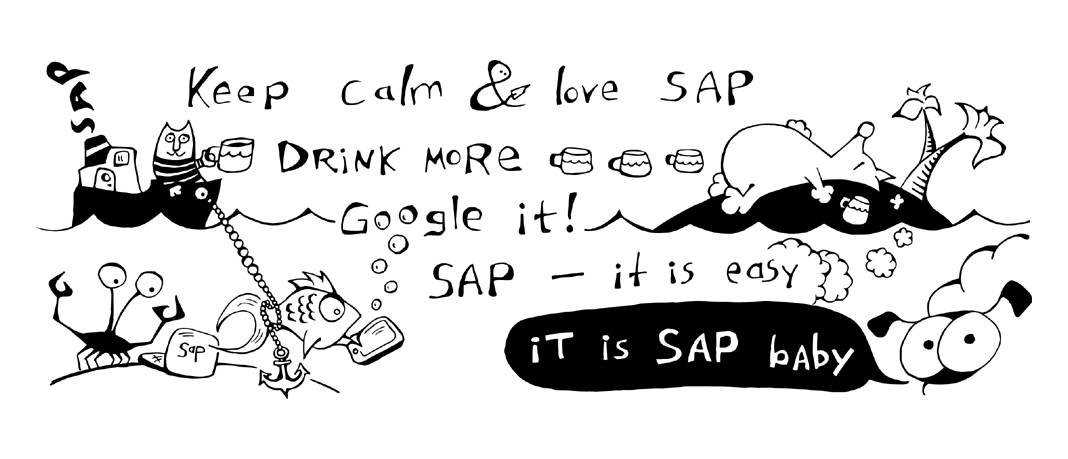 SAP
Keep calm & love SAP
DRINK MORE
Google it!
SAP — it is easy
SAP
iT is SAP bAby